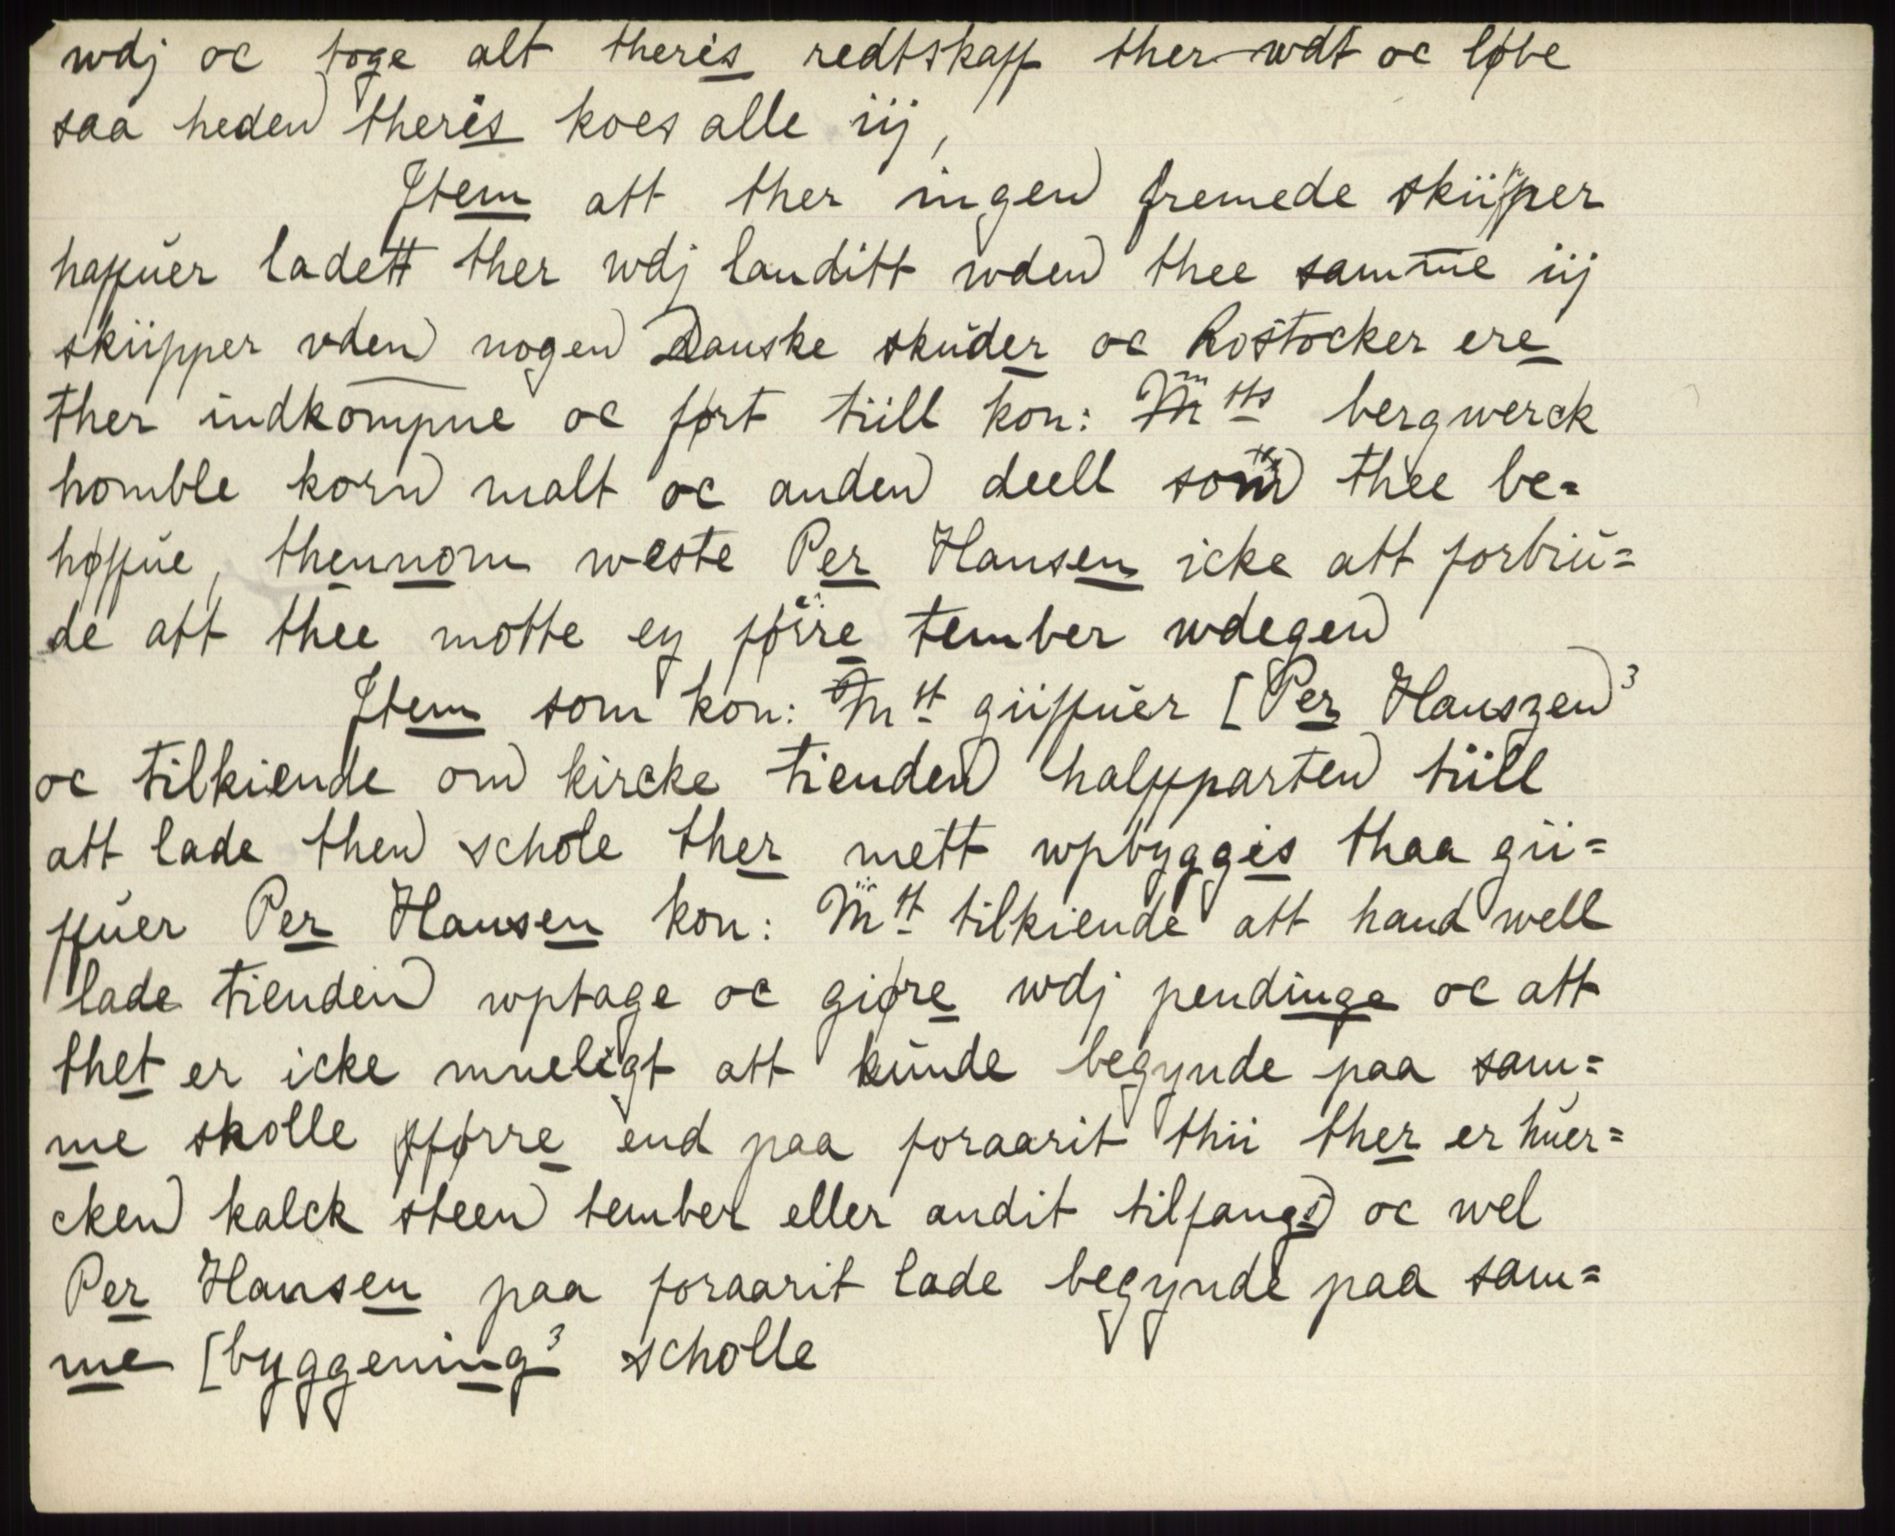 wdj oc toge alt theris redtskaff ther wdt oc løbe
saa heden theris koes alle iij,
Item att ther ingen fremede skiipper
haffuer ladett ther wdj landitt wden thee samme iij
skiipper vden nogen Danske skuder oc Rostocker ere
ther indkompne oc ført tiill kon: Mtts bergwerck
homble korn malt oc anden deell som thee be=
høffue, thennom weste Per Hansen icke att forbiu=
de att thee motte ey førre tember wdegen
Item som kon: Mtt giiffuer [Per Hanszen3
oc tilkiende om kircke tienden halffparten tiill
att lade then schole ther mett wpbyggis thaa gii=
ffuer Per Hansen kon: Mtt tilkiende att hand well
lade tienden wptage oc giøre wdj pendinge oc att
thet er icke mueligt att kunde begynde paa sam=
me skolle fførre end paa foraarit thii ther er huer=
cken kalck steen tember eller andit tilfangs oc wel
Per Hansen paa foraarit lade begynde paa sam=
me [byggening3 scholle